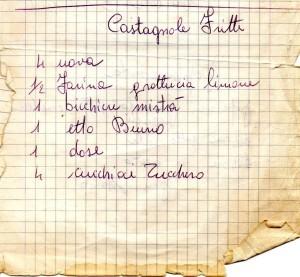 Castagnole Fritte
4 uova
1/2 Farina grattucia limone
1 bicchiere mistrà
1 etto Burro
1 dose
4 cucchiai Zucchero